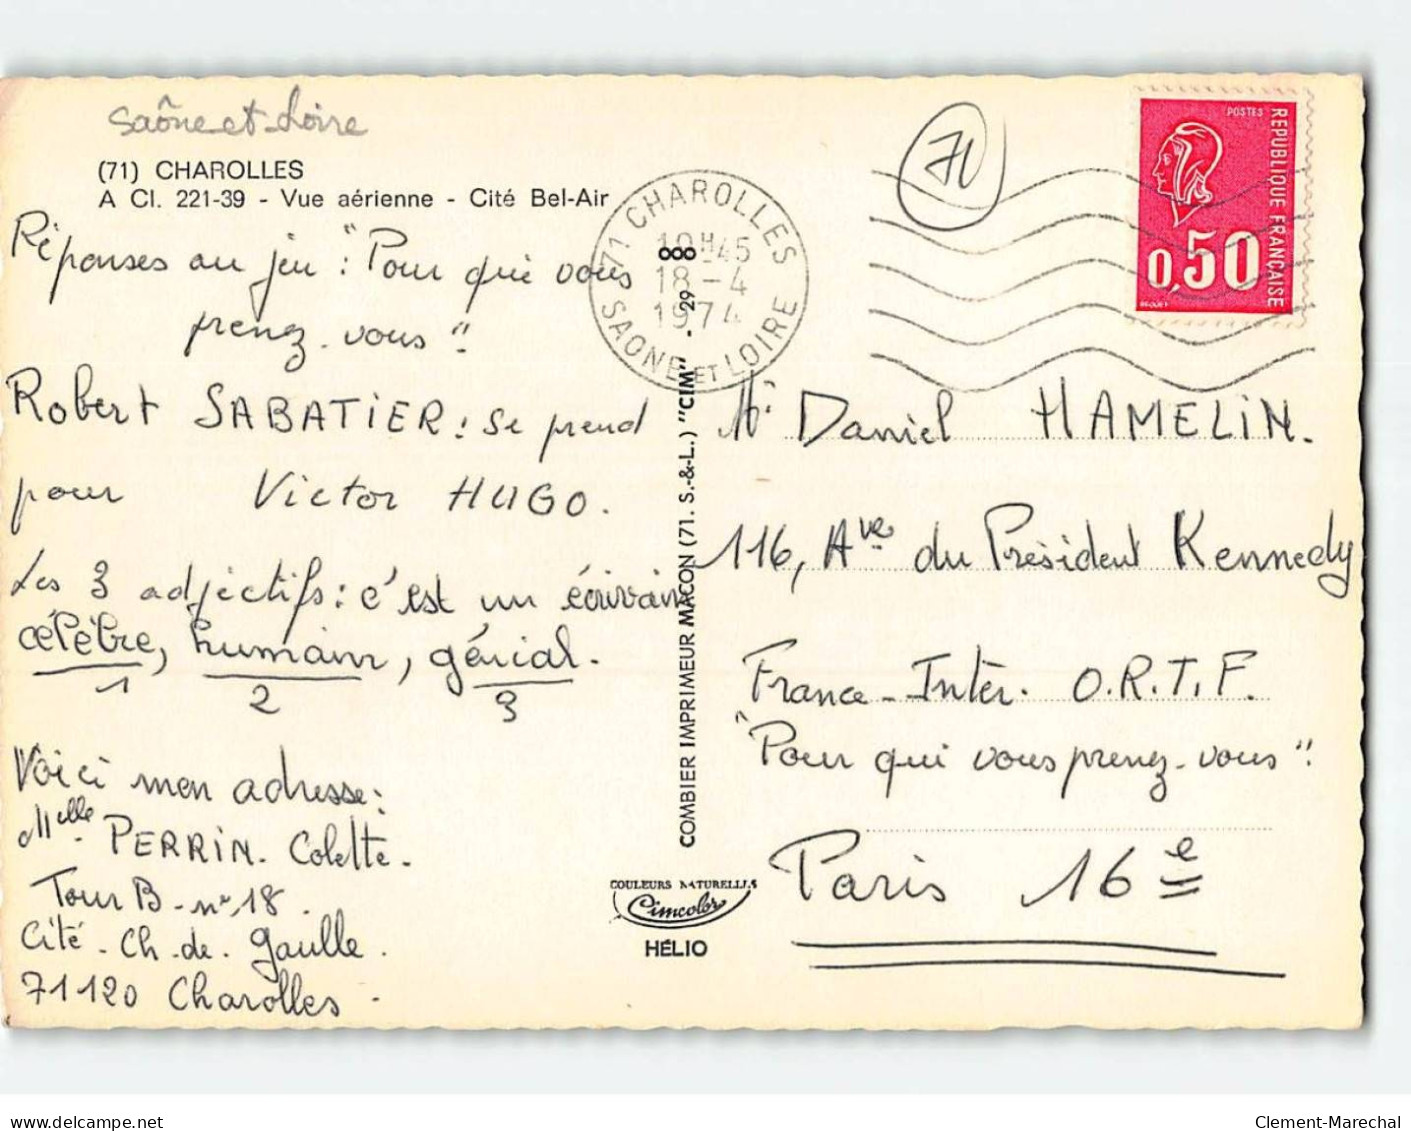 Saône-et-Loire
(71) CHAROLLES
A Cl. 221-39 - Vue aérienne - Cité Bel-Air
Réponses au jeu : "Pour qui vous
prenez-vous"
Robert SABATIER : se prend
pour Victor HUGO.
Les 3 adjectifs : c'est un écrivain
célèbre, humain, génial.
1
2
3
Voici mon adresse :
Melle PERRIN. Colette.
Tour B - n° 18.
Cité - Ch. de. Gaulle.
71120 Charolles.
71 CHAROLLES
18 - 4
1974
SAONE ET LOIRE
COMBIER IMPRIMEUR MACON (71. S.-&-L.) "CIM" - 29
COULEURS NATURELLES
Cimcolor
HÉLIO
71
POSTES
REPUBLIQUE FRANÇAISE
0,50
BEQUET
Mr Daniel HAMELIN.
116, Ave du Président Kennedy
France-Inter. O.R.T.F.
"Pour qui vous prenez-vous".
Paris 16e
delcampe.net
Clement-Marechal